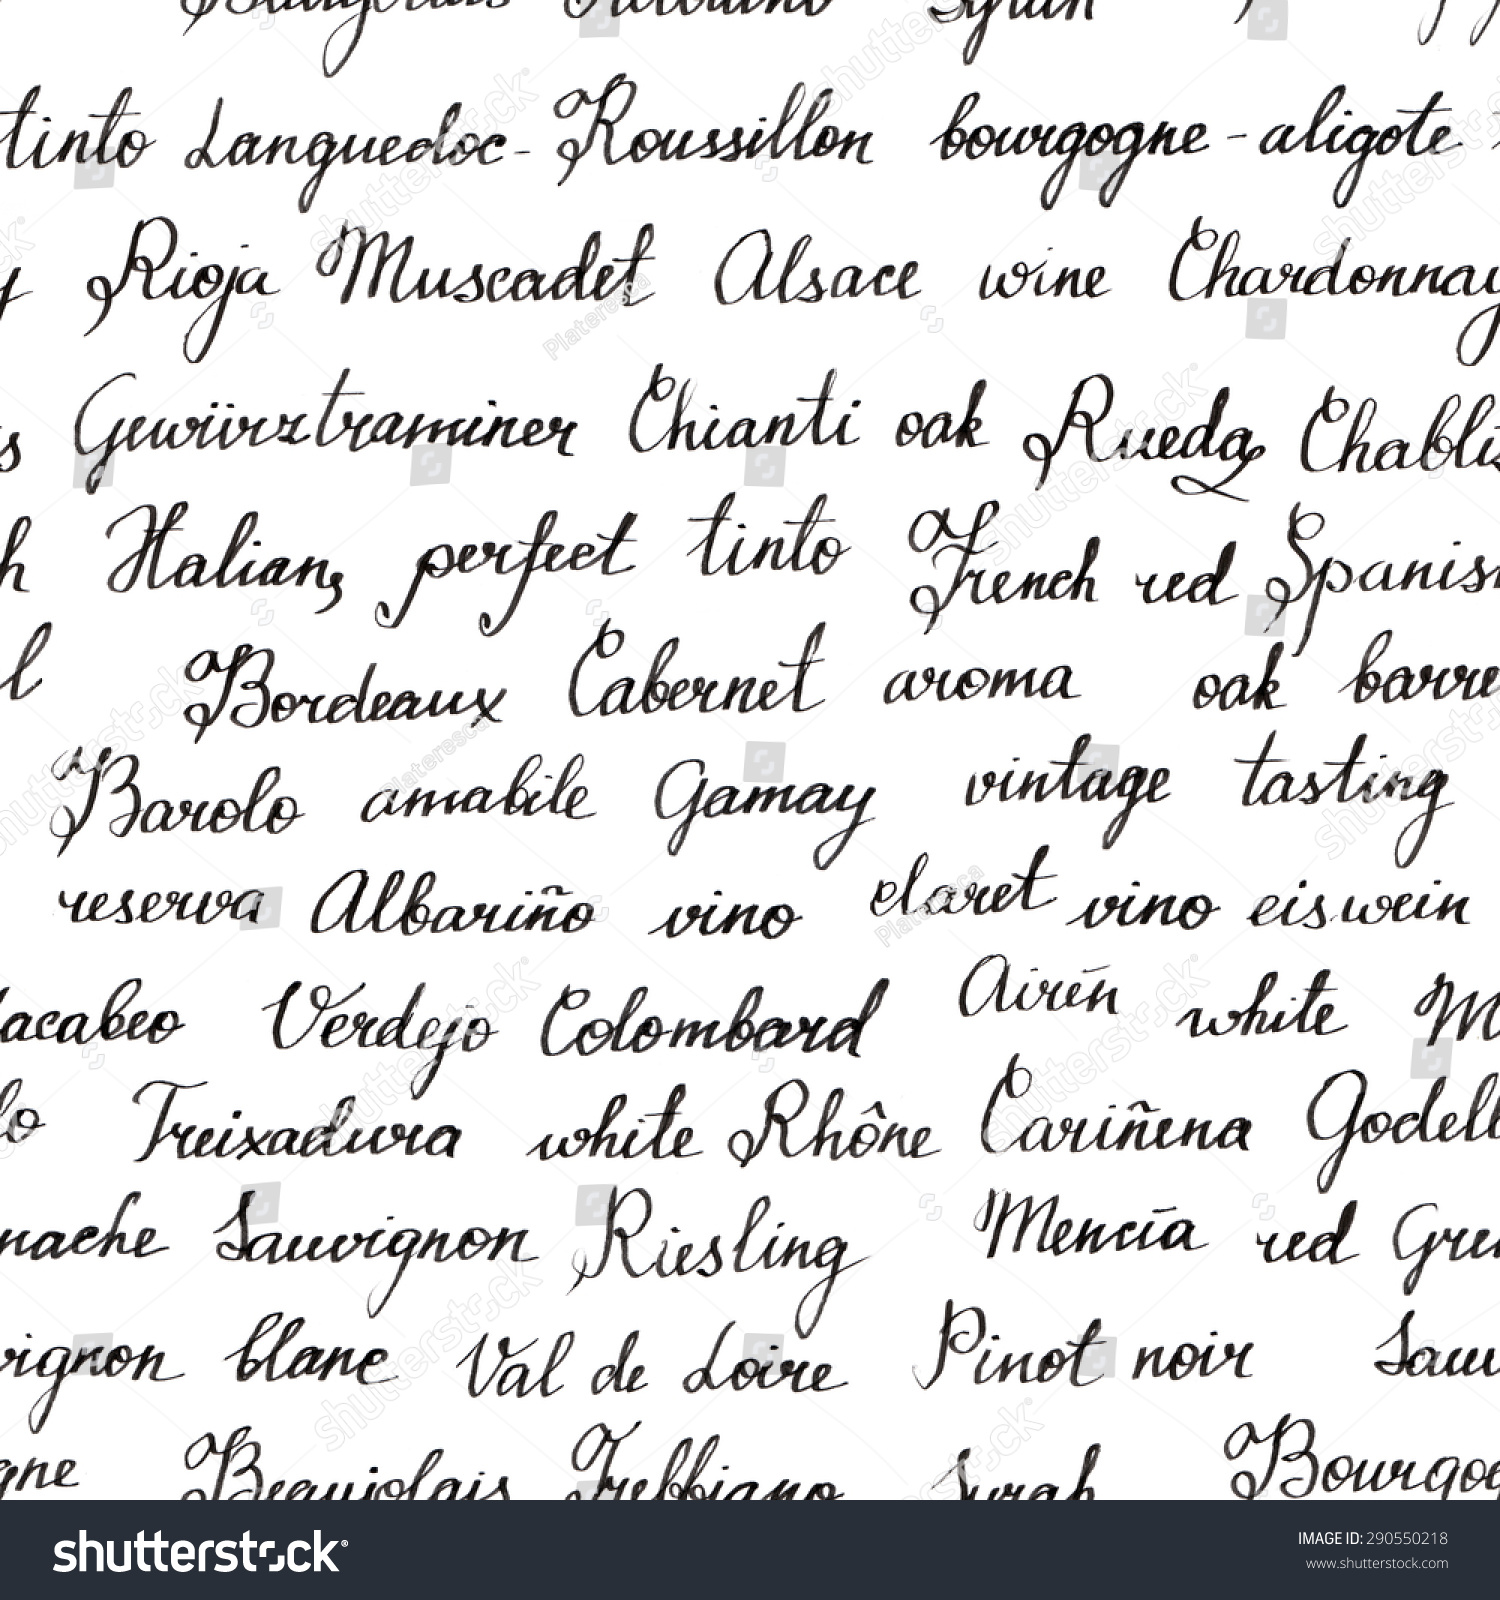 Beaujolais Trebbiano Syrah
tinto Languedoc-Roussillon bourgogne-aligote
y Rioja Muscadet Alsace wine Chardonnay
s Gewürztraminer Chianti oak Rueda Chablis
h Italian, perfect tinto French red Spanish
l Bordeaux Cabernet aroma oak barre
Barolo amabile Gamay vintage tasting
reserva Albariño vino claret vino eiswein
acabeo Verdejo Colombard Airén white M
lo Treixadura white Rhône Cariñena Godell
nache Sauvignon Riesling Mencía red Gre
vignon blanc Val de Loire Pinot noir Sauv
gne Beaujolais Trebbiano Syrah Bourgog
shutterstock
IMAGE ID: 290550218
www.shutterstock.com